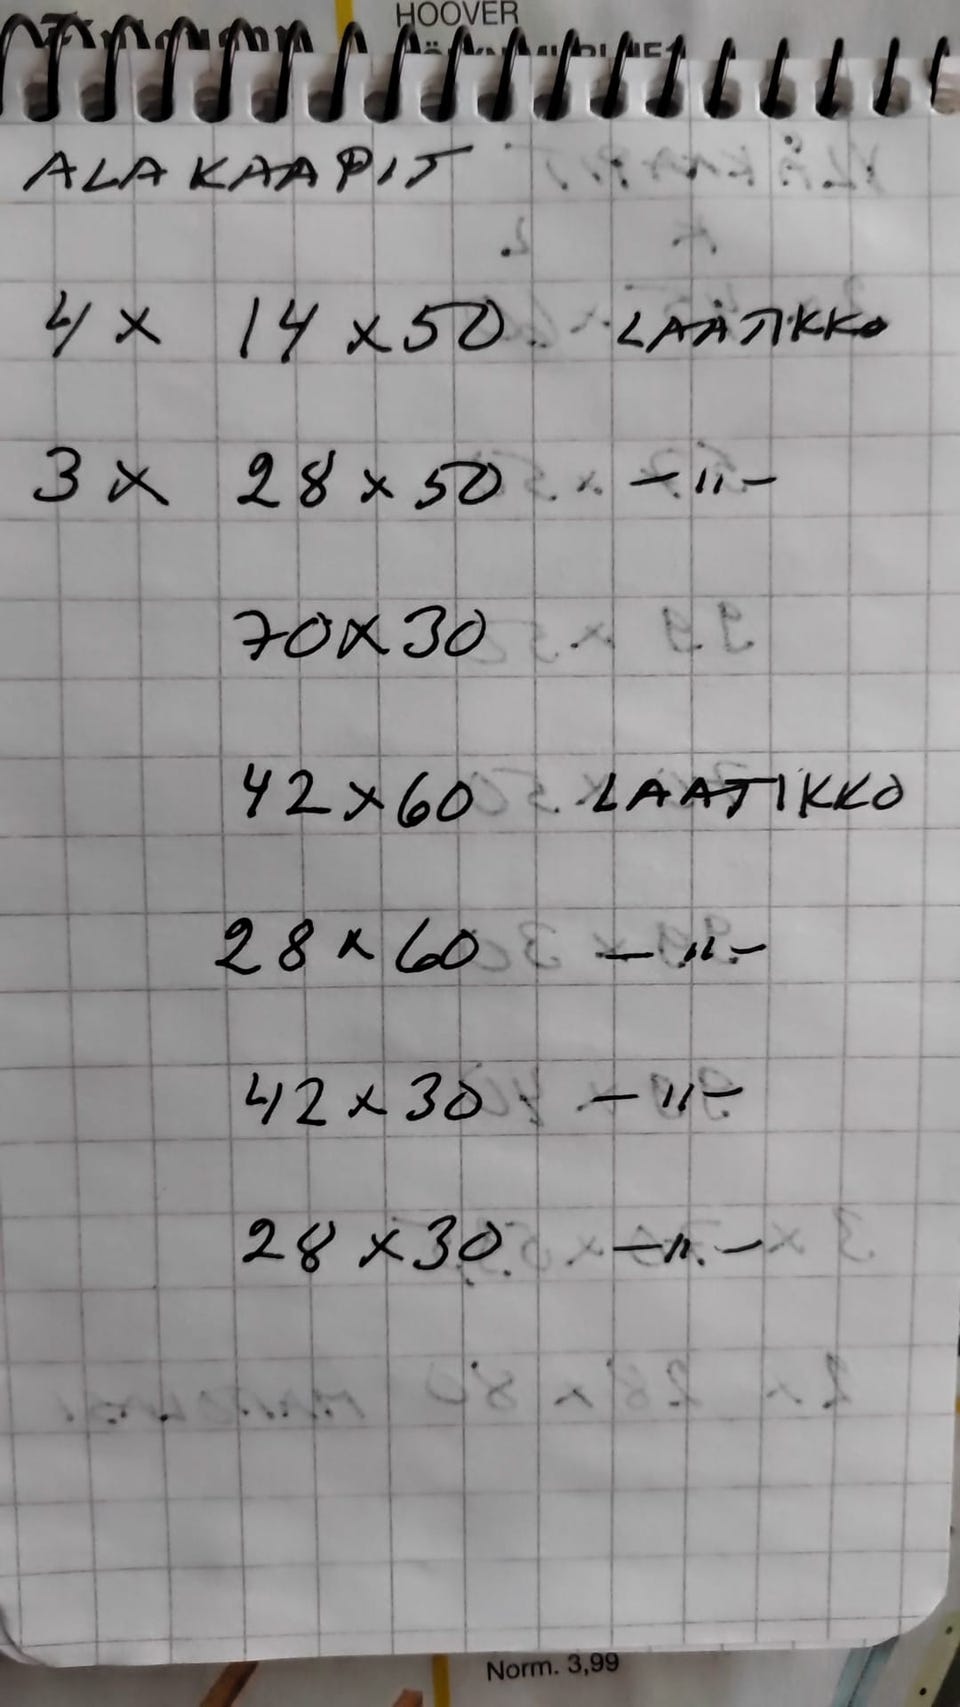 HOOVER
ALAKAAPIT
4 x 14 x 50 LAATIKKO
3 x 28 x 50 -"-
70 x 30
42 x 60 LAATIKKO
28 x 60 -"-
42 x 30 -"-
28 x 30 -"-
Norm. 3,99